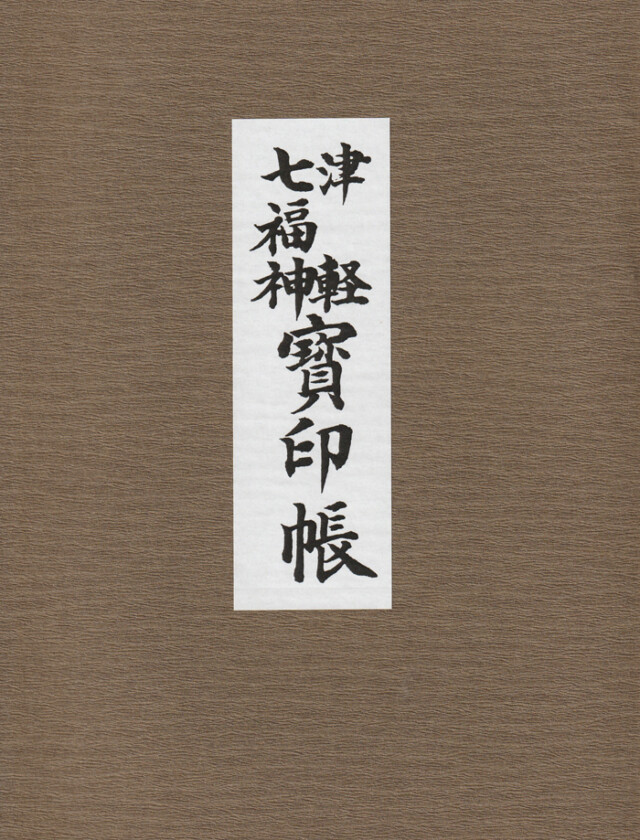 津軽
七福神
寳印帳